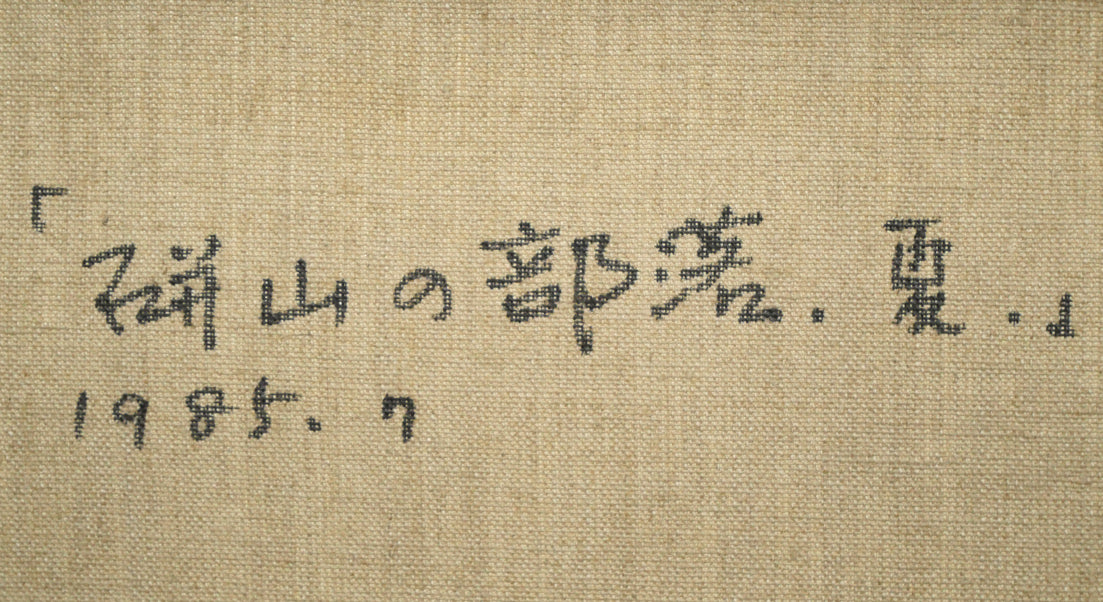 「の部落．夏．」
1985. 7